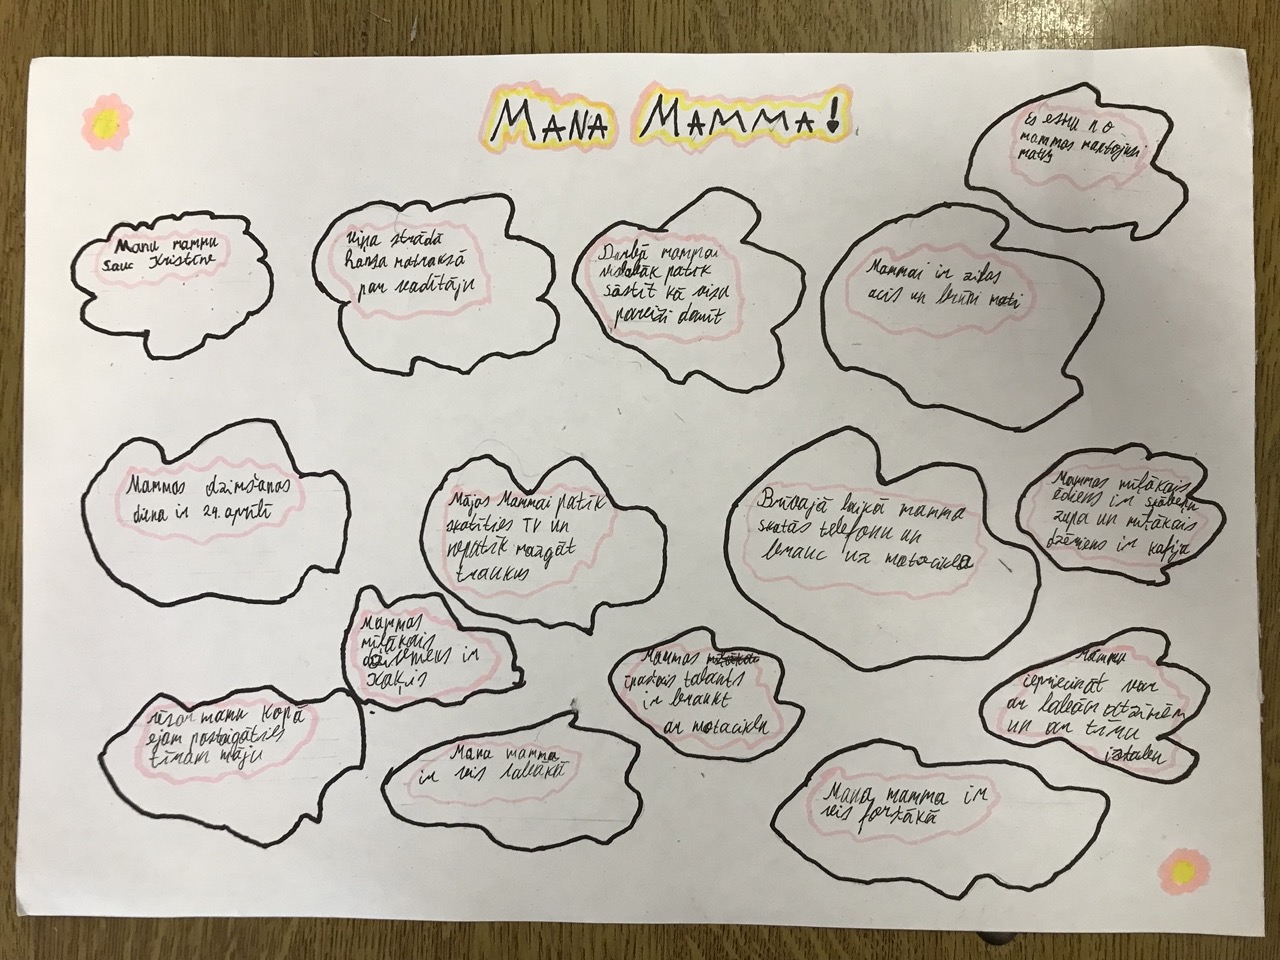 MANA MAMMA!
Es esmu no
mammas mantojusi
matus
Manu mammu
sauc Kristīne
Viņa strādā
hansa matraksā
par vadītāju
Darbā mammai
vislabāk patīk
stāstīt kā visu
pareizi darīt
Mammai ir zilas
acis un brūni mati
Mammas dzimšanas
diena ir 24. aprīlī
Mājās Mammai patīk
skatīties TV un
nepatīk mazgāt
traukus
Brīvajā laikā mamma
skatās telefonu un
brauc uz motocikla
Mammas mīļākais
ēdiens ir skābeņu
zupa un mīļākais
dzēriens ir kafija
Mammas
mīļākais
dzīvnieks ir
Kaķis
Mammas
īpašais talants
ir braukt
ar motociklu
Mammu
iepriecināt var
ar labām atzīmēm
un ar tīru
istabu
mamu Kopā
ejam pastaigāties
tīram māju
Mana mamma
ir vis labākā
Mana mamma ir
vis foršākā